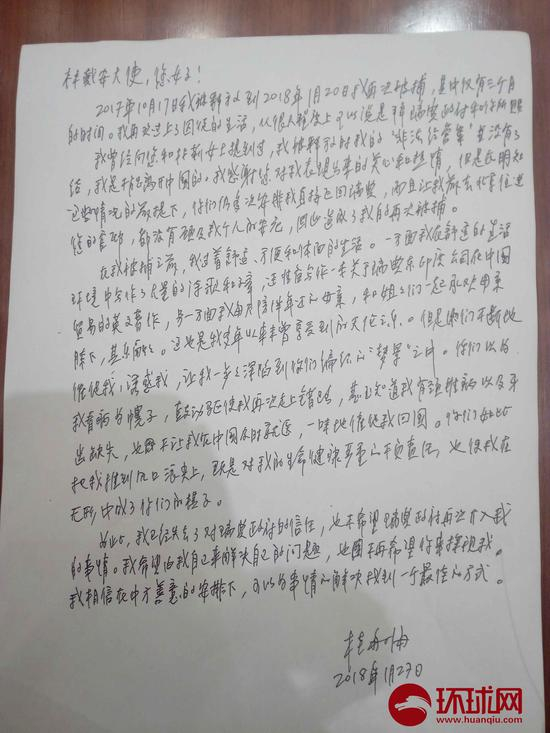 林戴安大使，您好！
2017年10月17日我被释放到2018年1月20日我再次被捕，其中仅有三个月
的时间。我再次过上了囚徒的生活，从很大程度上可以说是拜瑞典政府和你所赐
我曾经向您和 女士提到过，我被释放时我的“非法经营案”并没有了
结，我是不能离开中国的。我感谢您对我表现出来的关心和热情，但是在明知
这些情况的前提下，你们仍多次安排我直接返回瑞典，而且让我前去北京住进
您的官邸，都没有顾及我个人的安危，因此造成了我的再次被捕。
在我被捕之前，我过着舒适、方便和体面的生活。一方面我在舒适的生活
环境中写作了大量的诗歌和 ，还准备写作一套关于瑞典东印度公司在中国
贸易的英文著作，另一方面我每天陪伴年迈的母亲，和姐 们一起承欢
膝下，其乐融融。这也是我多年以来未曾享受到的天伦之乐。但是你们不断地
催促我，诱惑我，让我一步步深陷到你们编织的“梦罗”之中。你们以为
我看病为幌子，鼓动 使我再次走上错路，甚至知道我有
出缺失，也 不让我在中国及时就医，一味地催促我回国。你们如此
把我推到风口浪尖上，既是对我的生命健康严重的不负责任，也使我在
无形中成了你们的棋子。
为此，我已经失去了对瑞典政府的信任，也不希望瑞典政府再次介入我
的事情。我希望由我自己来解决自己的问题，也 不再希望你来探视我。
我相信在中方善意的安排下，可以为事情的解决找到一个最佳的方式。
桂敏海
2018年1月27日
环球网
www.huanqiu.com